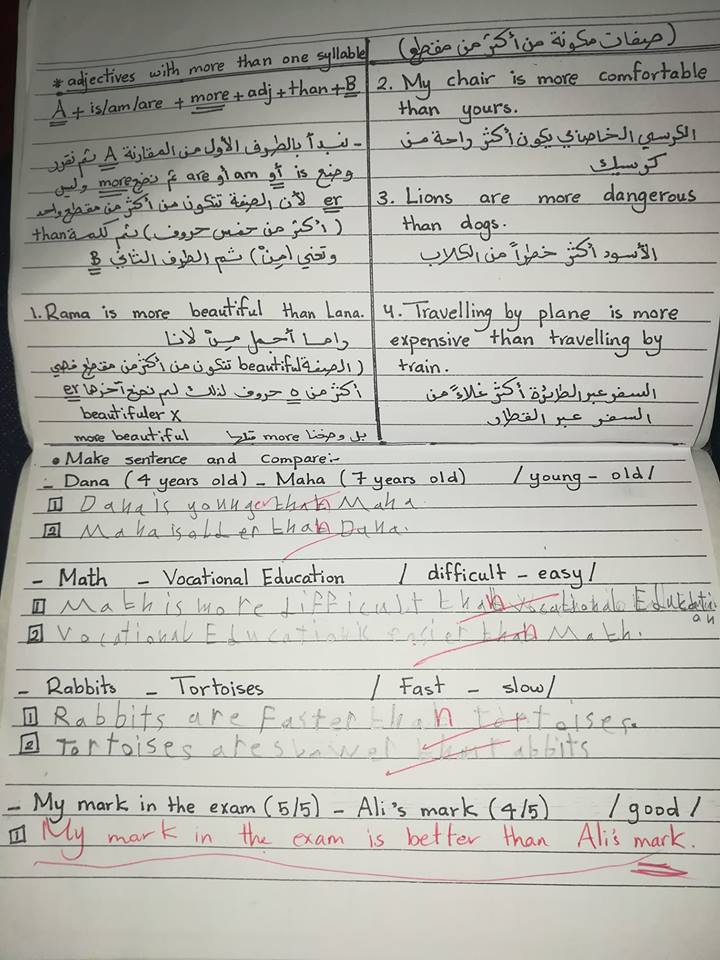 * adjectives with more than one syllable
A + is/am/are + more + adj + than + B
- نبدأ بالطرف الأول من المقارنة A ثم نقرر
وضع is أو am أو are ثم نضع more وليس
er لأن الصفة تتكون من أكثر من مقطع واحد
(أكثر من خمس حروف) ثم كلمة than
وتعني (مِنْ) ثم الطرف الثاني B
1. Rama is more beautiful than Lana.
راما أجمل مِنْ لانا
(الصفة beautiful تتكون من أكثر من مقطع فهي
أكثر من 5 حروف لذلك لم نضع آخرها er
beautifuler x
بل وضعنا more قبلها more beautiful
(صفات مكونة من أكثر من مقطع)
2. My chair is more comfortable
than yours.
الكرسي الخاص بي يكون أكثر راحة من
كرسيك
3. Lions are more dangerous
than dogs.
الأسود أكثر خطراً من الكلاب
4. Travelling by plane is more
expensive than travelling by
train.
السفر عبر الطائرة أكثر غلاءً من
السفر عبر القطار
• Make sentence and Compare:-
- Dana (4 years old) - Maha (7 years old) / young - old /
1 Dana is younger than Maha.
2 Maha is older than Dana.
- Math - Vocational Education / difficult - easy /
1 Math is more difficult than Vocational
2 Vocational Education easier than Math.
- Rabbits - Tortoises / Fast - slow /
1 Rabbits are Faster than tortoises.
2 Tortoises are slower than rabbits
- My mark in the exam (5/5) - Ali's mark (4/5) / good /
1 My mark in the exam is better than Ali's mark.